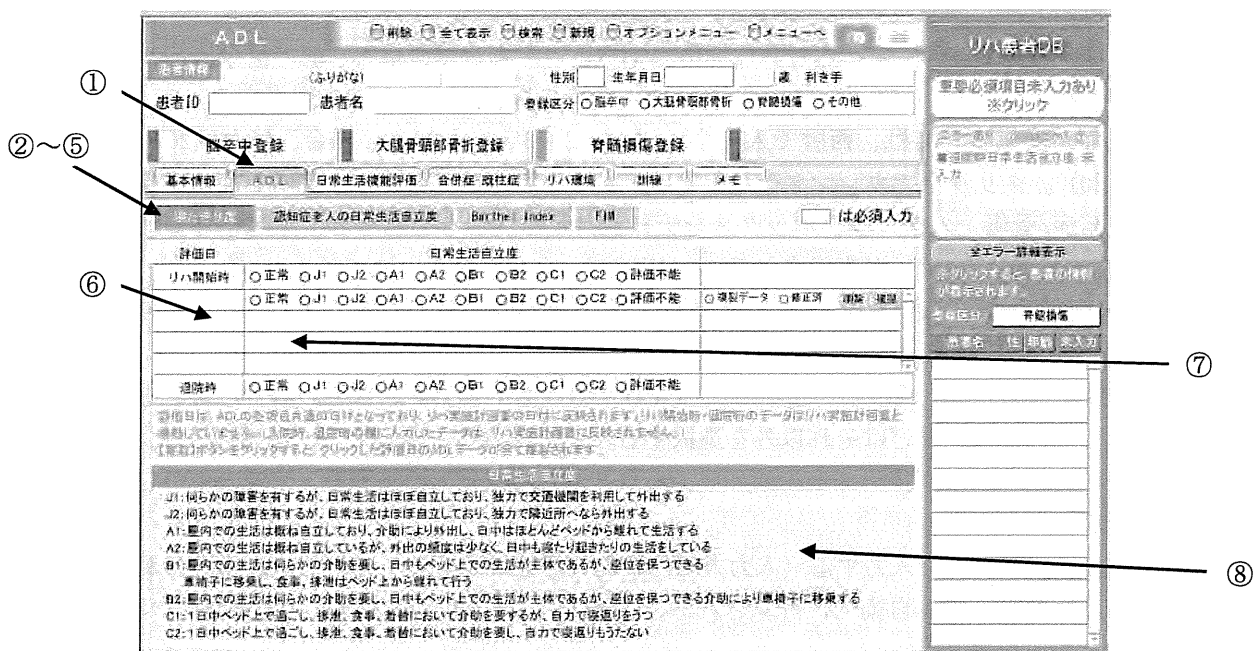 ADL
削除 全て表示 検索 新規 オプションメニュー メニューへ
リハ患者DB
患者情報
(ふりがな)
性別 生年月日 歳 利き手
患者ID 患者名 登録区分 ○脳卒中 ○大腿骨頸部骨折 ○脊髄損傷 ○その他
重要必須項目未入力あり
※クリック
①
②～⑤
脳卒中登録 大腿骨頸部骨折登録 脊髄損傷登録
基本情報 ADL 日常生活機能評価 合併症・既往症 リハ環境 訓練 メモ
認知症老人の日常生活自立度 Barthel Index FIM
は必須入力
評価日 日常生活自立度
リハ開始時 ○正常 ○J1 ○J2 ○A1 ○A2 ○B1 ○B2 ○C1 ○C2 ○評価不能
○正常 ○J1 ○J2 ○A1 ○A2 ○B1 ○B2 ○C1 ○C2 ○評価不能 ○複製データ ○修正済 削除 複製
⑥
⑦
退院時 ○正常 ○J1 ○J2 ○A1 ○A2 ○B1 ○B2 ○C1 ○C2 ○評価不能
全エラー詳細表示
※クリックすると、患者の情報
が表示されます。
登録区分 脊髄損傷
患者名 性 年齢 未入力
日常生活自立度
J1:何らかの障害を有するが、日常生活はほぼ自立しており、独力で交通機関を利用して外出する
J2:何らかの障害を有するが、日常生活はほぼ自立しており、独力で隣近所へなら外出する
A1:屋内での生活は概ね自立しており、介助により外出し、日中はほとんどベッドから離れて生活する
A2:屋内での生活は概ね自立しているが、外出の頻度は少なく、日中も寝たり起きたりの生活をしている
B1:屋内での生活は何らかの介助を要し、日中もベッド上での生活が主体であるが、座位を保つできる
車椅子に移乗し、食事、排泄はベッド上から離れて行う
B2:屋内での生活は何らかの介助を要し、日中もベッド上での生活が主体であるが、座位を保つできる介助により車椅子に移乗する
C1:1日中ベッド上で過ごし、排泄、食事、着替において介助を要するが、自力で寝返りをうつ
C2:1日中ベッド上で過ごし、排泄、食事、着替において介助を要し、自力で寝返りもうたない
⑧